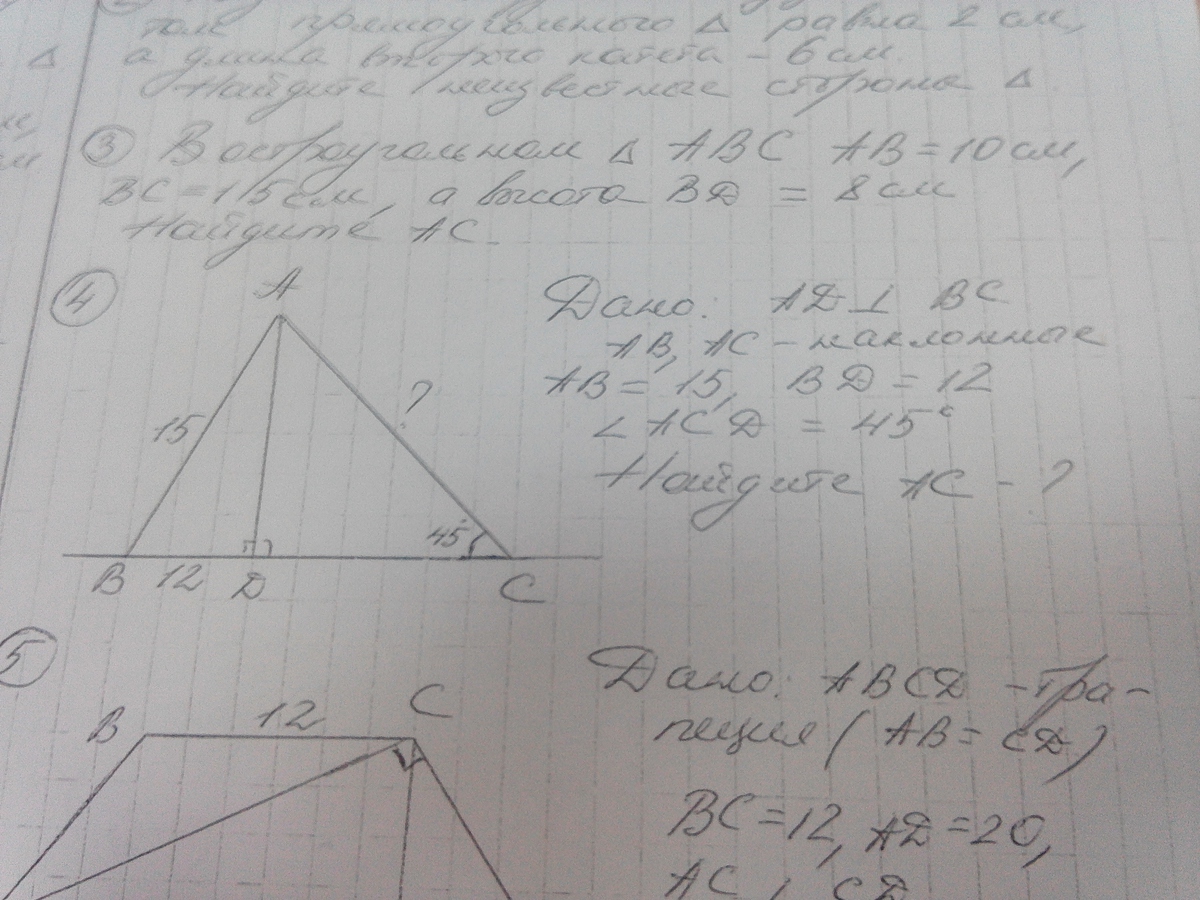 прямоугольного Δ равна 2 см,
Δ а длина второго катета – 6 см.
Найдите неизвестные стороны Δ.
см
③ В остроугольном Δ ABC AB = 10 см,
BC = 15 см, а высота BD = 8 см
Найдите AC.
④
A
Дано: AD ⊥ BC
AB, AC – наклонные
AB = 15, BD = 12
∠ACD = 45°
Найдите AC – ?
15
?
45
B 12 D C
⑤
B 12 C
Дано: ABCD – тра-
пеция (AB = CD)
BC = 12, AD = 20,
AC CD